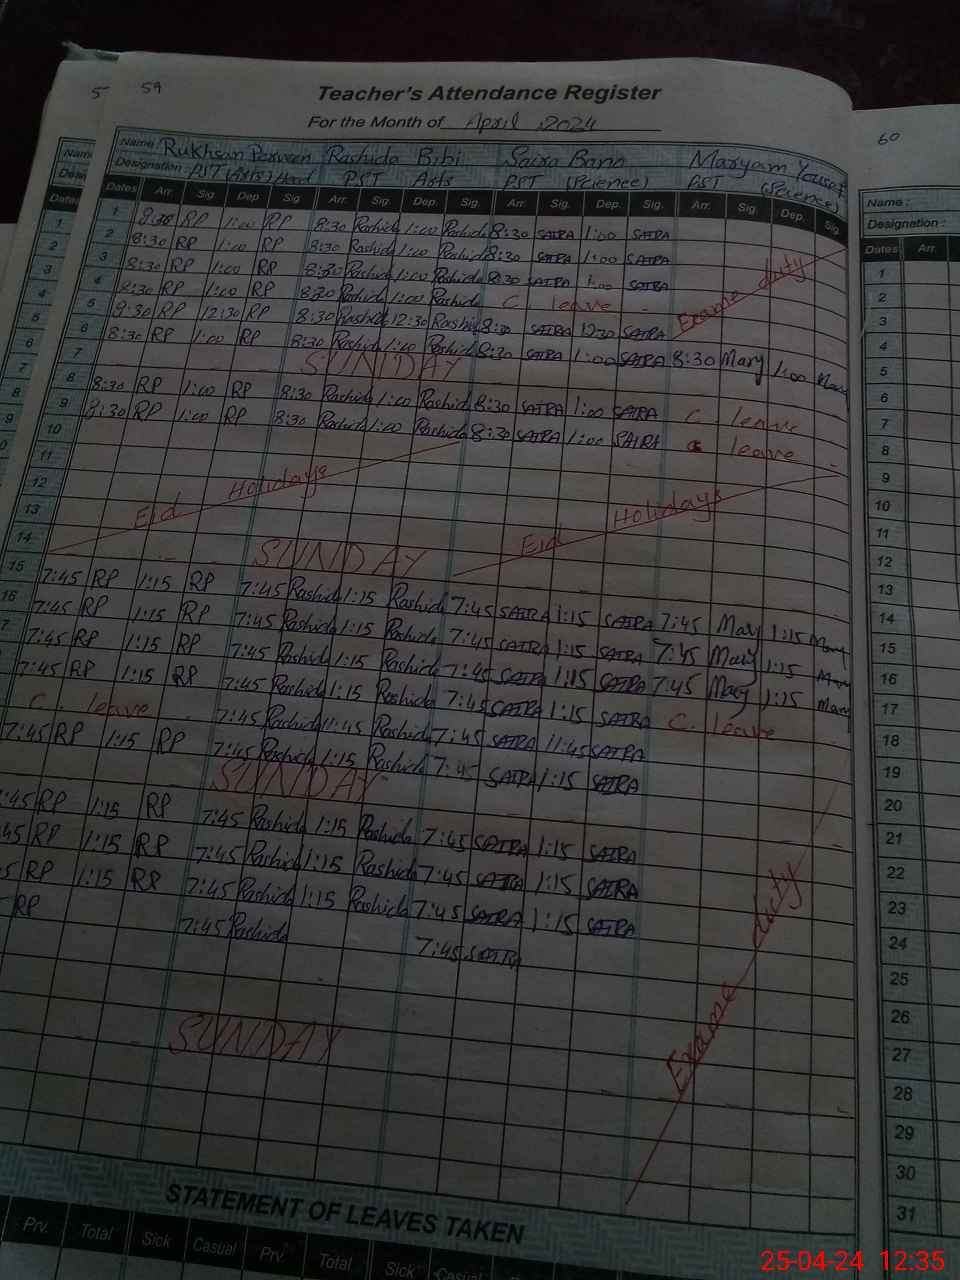 59
Teacher's Attendance Register
For the Month of April, 2024
60
Name Rukhsan Parveen Rashida Bibi Saira Bano Maryam Yousaf
Designation: PST (Arts) Head PST Arts PST (Science) PST (Science)
Dates Arr. Sig. Dep. Sig. Arr. Sig. Dep. Sig. Arr. Sig. Dep. Sig. Arr. Sig. Dep. Sig.
1 8:30 RP 1:00 RP 8:30 Rashida 1:00 Rashida 8:30 SAIRA 1:00 SAIRA
2 8:30 RP 1:00 RP 8:30 Rashida 1:00 Rashida 8:30 SAIRA 1:00 SAIRA
3 8:30 RP 1:00 RP 8:30 Rashida 1:00 Rashida 8:30 SAIRA 1:00 SAIRA
Exame duty
4 8:30 RP 1:00 RP 8:30 Rashida 1:00 Rashida C leave
5 8:30 RP 12:30 RP 8:30 Rashida 12:30 Rashida 8:30 SAIRA 12:30 SAIRA
6 8:30 RP 1:00 RP 8:30 Rashida 1:00 Rashida 8:30 SAIRA 1:00 SAIRA 8:30 Mary 1:00 Mary
7 SUNDAY
8 8:30 RP 1:00 RP 8:30 Rashida 1:00 Rashida 8:30 SAIRA 1:00 SAIRA C. leave
9 8:30 RP 1:00 RP 8:30 Rashida 1:00 Rashida 8:30 SAIRA 1:00 SAIRA leave
10
11
12
13
Eid Holidays Eid Holidays
14 SUNDAY
15 7:45 RP 1:15 RP 7:45 Rashida 1:15 Rashida 7:45 SAIRA 1:15 SAIRA 7:45 Mary 1:15 Mary
16 7:45 RP 1:15 RP 7:45 Rashida 1:15 Rashida 7:45 SAIRA 1:15 SAIRA 7:45 Mary 1:15 Mary
7 7:45 RP 1:15 RP 7:45 Rashida 1:15 Rashida 7:45 SAIRA 1:15 SAIRA 7:45 Mary 1:15 Mary
7:45 RP 1:15 RP 7:45 Rashida 1:15 Rashida 7:45 SAIRA 1:15 SAIRA C. leave
C. leave 7:45 Rashida 11:45 Rashida 7:45 SAIRA 11:45 SAIRA
7:45 RP 1:15 RP 7:45 Rashida 1:15 Rashida 7:45 SAIRA 1:15 SAIRA
SUNDAY
:45 RP 1:15 RP 7:45 Rashida 1:15 Rashida 7:45 SAIRA 1:15 SAIRA
45 RP 1:15 RP 7:45 Rashida 1:15 Rashida 7:45 SAIRA 1:15 SAIRA
5 RP 1:15 RP 7:45 Rashida 1:15 Rashida 7:45 SAIRA 1:15 SAIRA
RP 7:45 Rashida 7:45 SAIRA
Exame duty
SUNDAY
STATEMENT OF LEAVES TAKEN
Prv. Total Sick Casual Prv. Total Sick Casual
Name :
Designation :
Dates Arr.
1
2
3
4
5
6
7
8
9
10
11
12
13
14
15
16
17
18
19
20
21
22
23
24
25
26
27
28
29
30
31
25-04-24 12:35